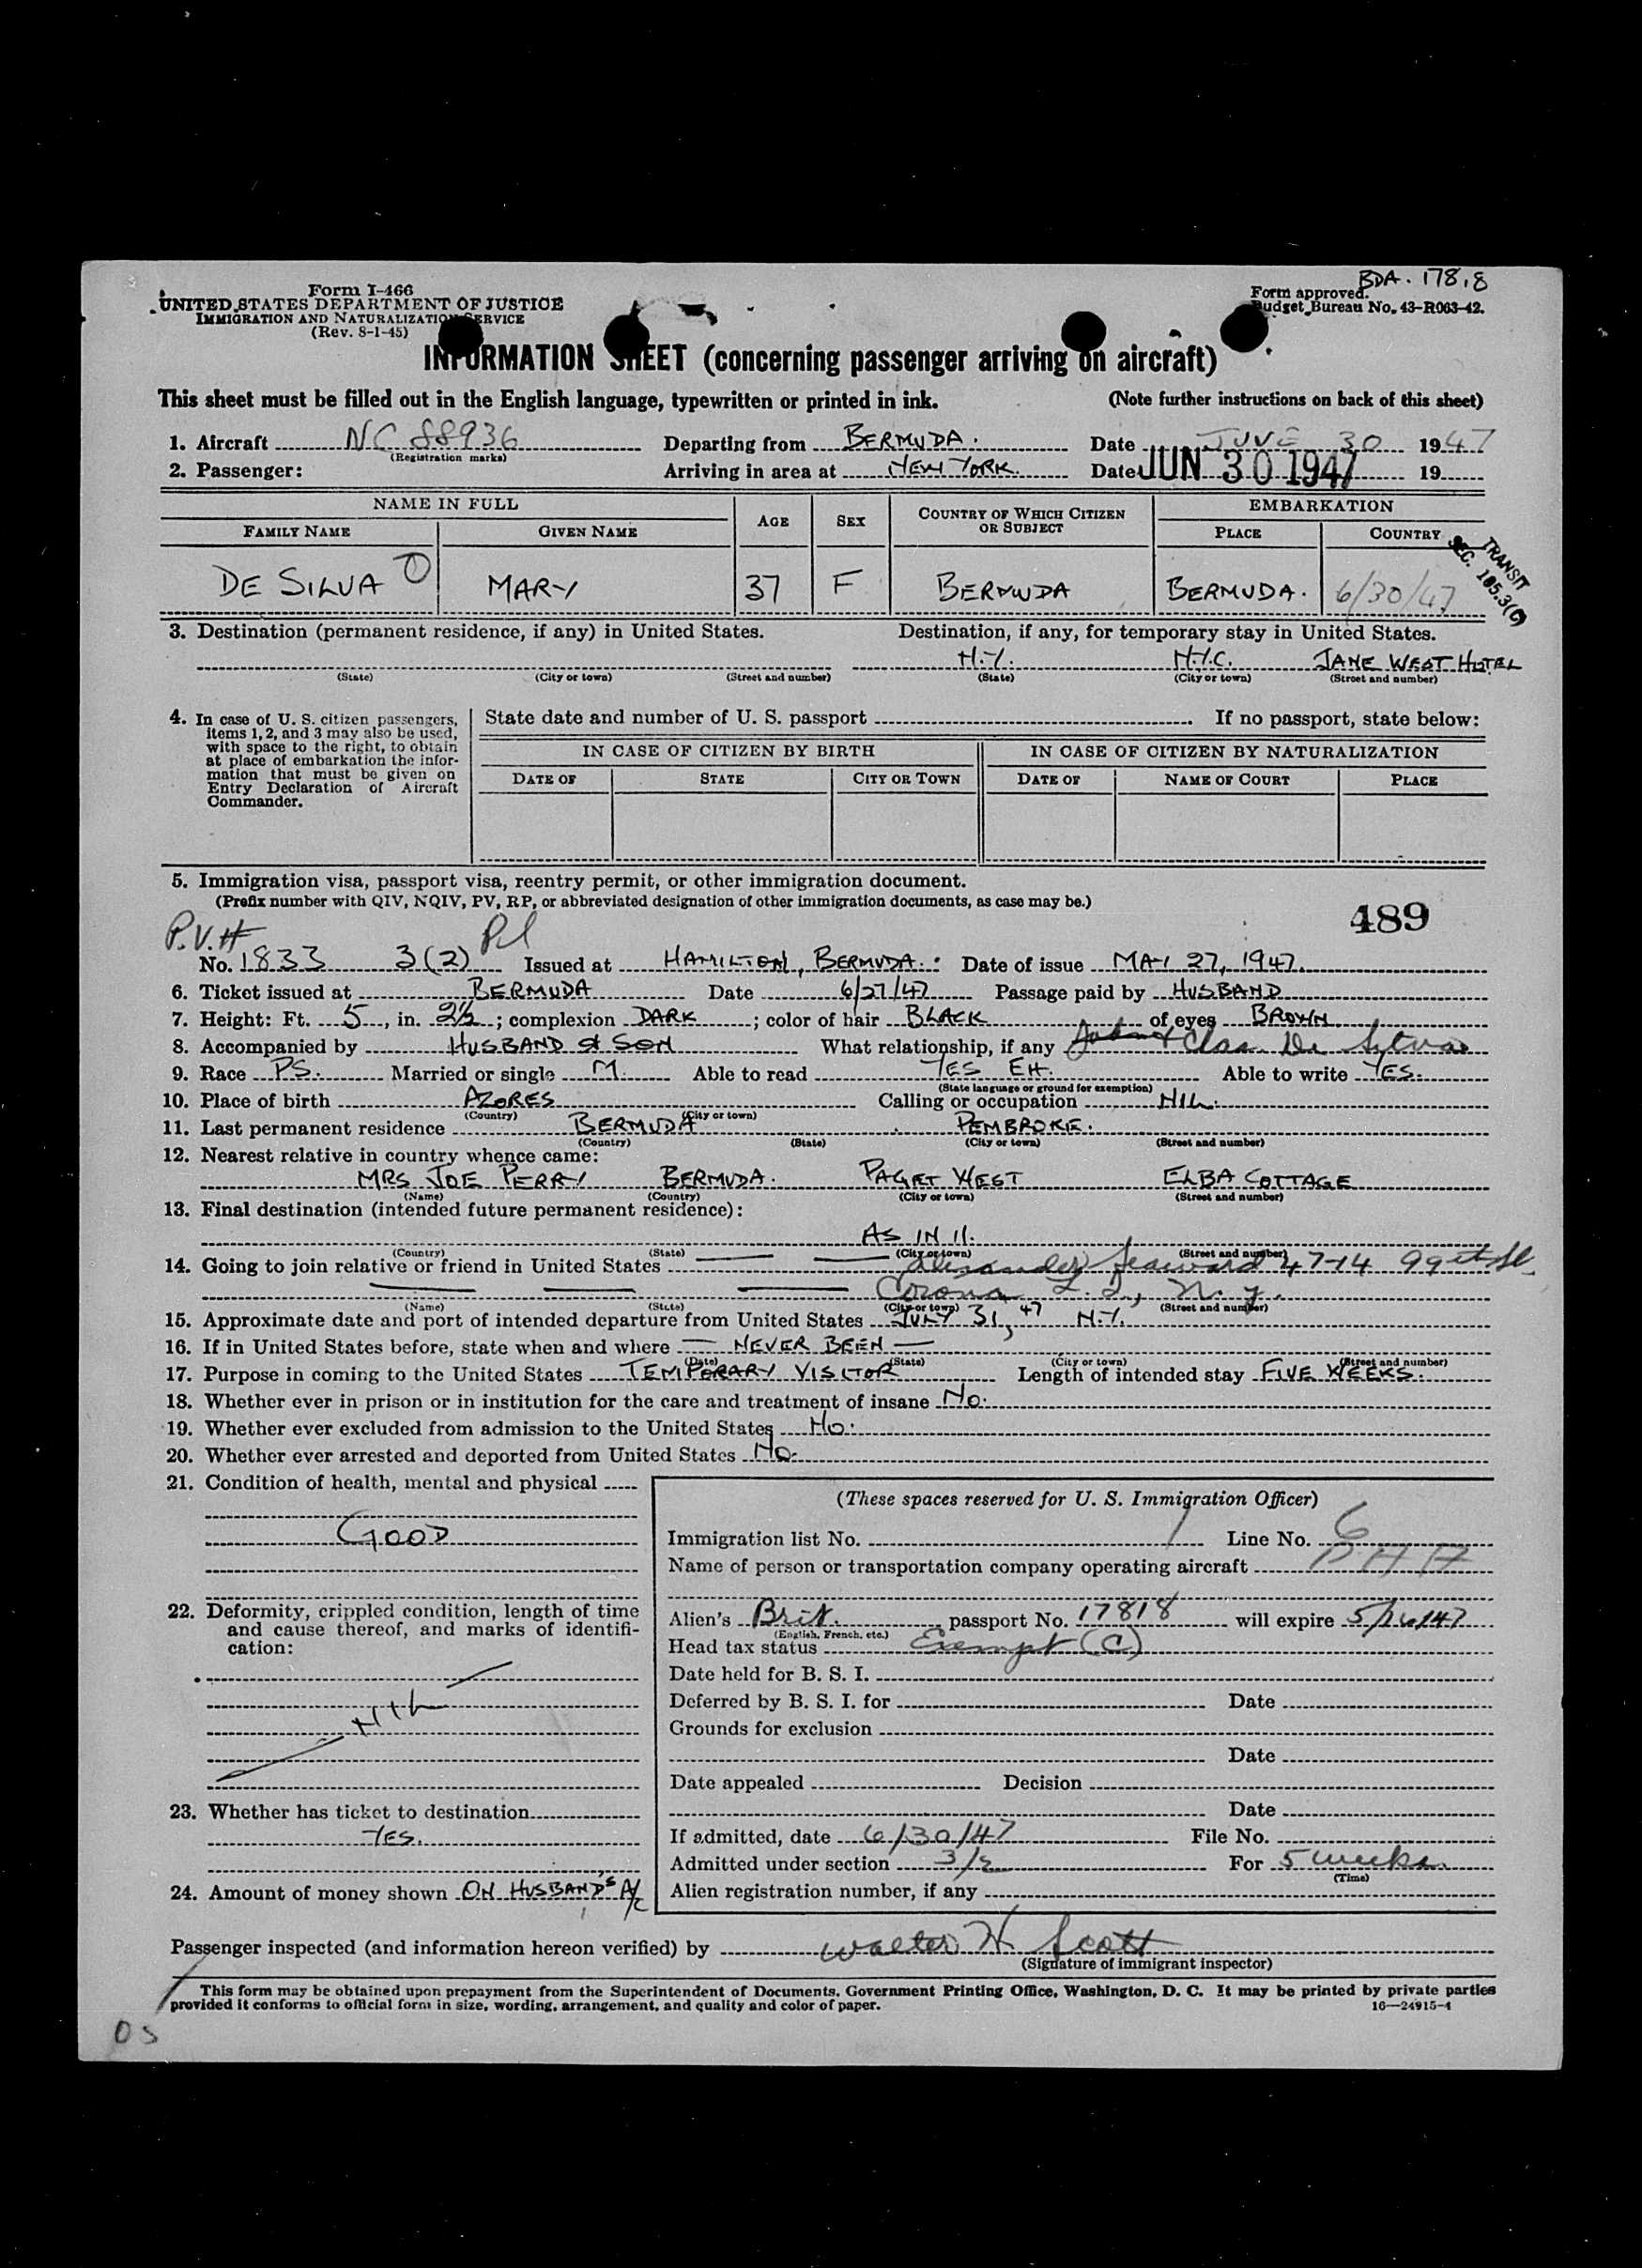 BDA. 17818
Form I-466
UNITED STATES DEPARTMENT OF JUSTICE
IMMIGRATION AND NATURALIZATION SERVICE
(Rev. 8-1-45)
Form approved.
Budget Bureau No. 43-R063-42.
INFORMATION SHEET (concerning passenger arriving on aircraft)
This sheet must be filled out in the English language, typewritten or printed in ink. (Note further instructions on back of this sheet)
1. Aircraft NC 88936 Departing from BERMUDA. Date JUNE 30 1947
(Registration marks)
2. Passenger: Arriving in area at NEW YORK. Date JUN 30 1947 19
NAME IN FULL AGE SEX COUNTRY OF WHICH CITIZEN OR SUBJECT EMBARKATION
FAMILY NAME GIVEN NAME PLACE COUNTRY
TRANSIT
SEC. 105.3(C)
DE SILVA MARY 37 F BERMUDA BERMUDA. 6/30/47
3. Destination (permanent residence, if any) in United States. Destination, if any, for temporary stay in United States.
N.Y. N.Y.C. JANE WEST HOTEL
(State) (City or town) (Street and number) (State) (City or town) (Street and number)
4. In case of U. S. citizen passengers, items 1, 2, and 3 may also be used, with space to the right, to obtain at place of embarkation the information that must be given on Entry Declaration of Aircraft Commander.
State date and number of U. S. passport. If no passport, state below:
IN CASE OF CITIZEN BY BIRTH IN CASE OF CITIZEN BY NATURALIZATION
DATE OF STATE CITY OR TOWN DATE OF NAME OF COURT PLACE
5. Immigration visa, passport visa, reentry permit, or other immigration document.
(Prefix number with QIV, NQIV, PV, RP, or abbreviated designation of other immigration documents, as case may be.)
489
P.V.#
No. 1833 3(2) Issued at HAMILTON, BERMUDA. Date of issue MAY 27, 1947.
6. Ticket issued at BERMUDA Date 6/27/47 Passage paid by HUSBAND
7. Height: Ft. 5, in. 2½; complexion DARK; color of hair BLACK of eyes BROWN
8. Accompanied by HUSBAND & SON What relationship, if any De Silva
9. Race PS. Married or single M. Able to read YES EH. Able to write YES.
(State language or ground for exemption)
10. Place of birth AZORES Calling or occupation NIL.
(Country) (City or town)
11. Last permanent residence BERMUDA PEMBROKE.
(Country) (State) (City or town) (Street and number)
12. Nearest relative in country whence came:
MRS JOE PERRY BERMUDA. PAGET WEST ELBA COTTAGE
(Name) (Country) (City or town) (Street and number)
13. Final destination (intended future permanent residence):
AS IN 11.
(Country) (State) (City or town) (Street and number)
14. Going to join relative or friend in United States Alexander Seaward 47-14 99 St
Corona L. I., N. Y.
(Name) (State) (City or town) (Street and number)
15. Approximate date and port of intended departure from United States JULY 31, 47 N.Y.
16. If in United States before, state when and where — NEVER BEEN —
(Date) (State) (City or town) (Street and number)
17. Purpose in coming to the United States TEMPORARY VISITOR Length of intended stay FIVE WEEKS.
18. Whether ever in prison or in institution for the care and treatment of insane NO.
19. Whether ever excluded from admission to the United States NO.
20. Whether ever arrested and deported from United States NO.
21. Condition of health, mental and physical
GOOD
22. Deformity, crippled condition, length of time and cause thereof, and marks of identification:
NIL
23. Whether has ticket to destination
YES.
24. Amount of money shown ON HUSBAND'S A/C
(These spaces reserved for U. S. Immigration Officer)
Immigration list No. 1 Line No. 6
Name of person or transportation company operating aircraft PAA
Alien's Brit. passport No. 17818 will expire 5/26/47
(English, French, etc.)
Head tax status Exempt (C)
Date held for B. S. I.
Deferred by B. S. I. for Date
Grounds for exclusion
Date
Date appealed Decision
Date
If admitted, date 6/30/47 File No.
Admitted under section 3/2 For 5 weeks
(Time)
Alien registration number, if any
Passenger inspected (and information hereon verified) by Walter H Scott
(Signature of immigrant inspector)
This form may be obtained upon prepayment from the Superintendent of Documents, Government Printing Office, Washington, D. C. It may be printed by private parties
provided it conforms to official form in size, wording, arrangement, and quality and color of paper. 16—24915-4
OS